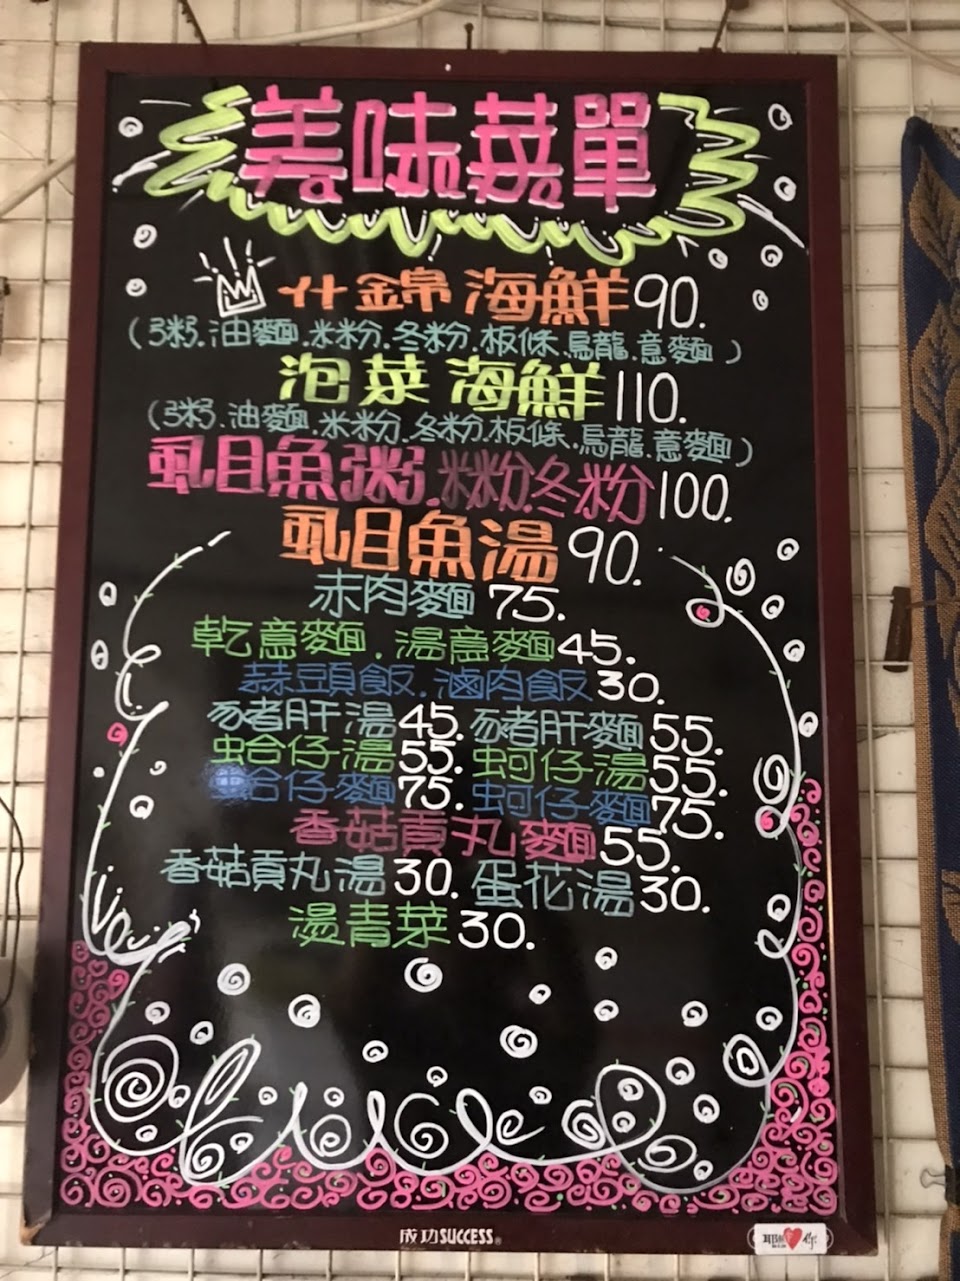 美味菜單
什錦海鮮90.
(粥.油麵.米粉.冬粉.板條.烏龍.意麵)
泡菜海鮮110.
(粥.油麵.米粉.冬粉.板條.烏龍.意麵)
虱目魚粥.米粉.冬粉100.
虱目魚湯90.
赤肉麵75.
乾意麵.湯意麵45.
蒜頭飯.滷肉飯30.
豬肝湯45. 豬肝麵55.
蛤仔湯55. 蚵仔湯55.
蛤仔麵75. 蚵仔麵75.
香菇貢丸麵55.
香菇貢丸湯30. 蛋花湯30.
燙青菜30.
成功SUCCESS®